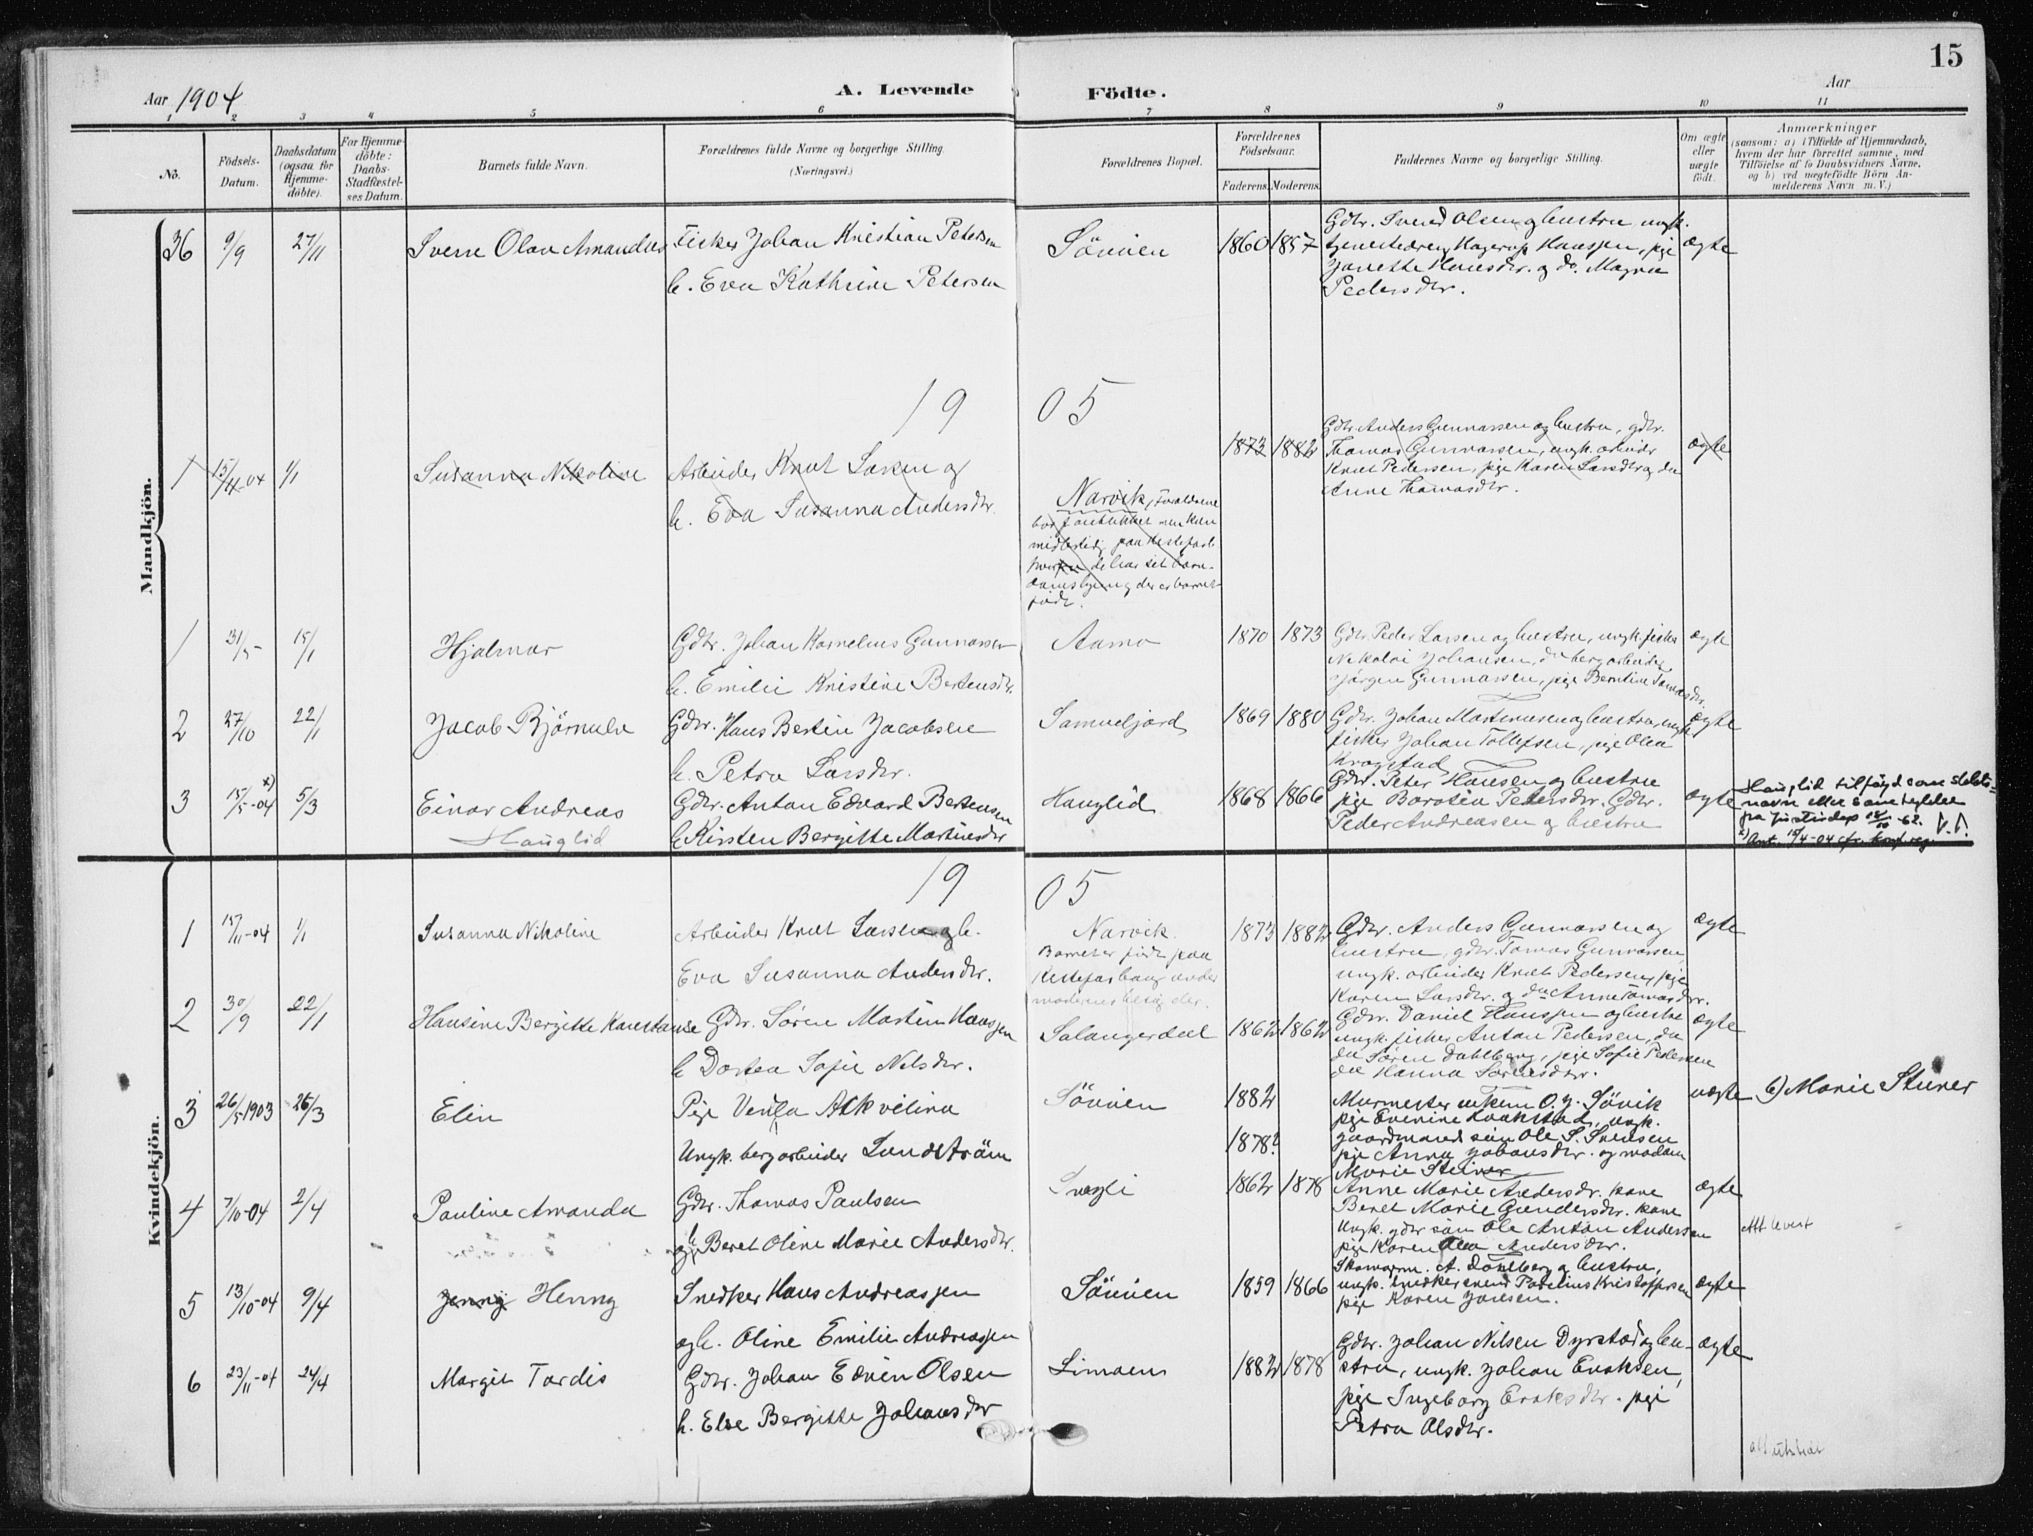 15
Aar 1904
A. Levende Födte.
Aar
1 2 3 4 5 6 7 8 9 10 11
No.
Födsels-Datum.
Daabsdatum (ogsaa for Hjemme-döbte).
For Hjemme-döbte: Daabs-Stadfæstel-ses Datum.
Barnets fulde Navn.
Forældrenes fulde Navne og borgerlige Stilling.
(Næringsvei.)
Forældrenes Bopæl.
Forældrenes Födselsaar.
Faderens. Moderens.
Faddernes Navne og borgerlige Stilling.
Om ægte eller uægte födt.
Anmærkninger
(saasom: a) i Tilfælde af Hjemmedaab,
hvem der har forrettet samme, med
Tilföielse af to Daabsvidners Navne,
og b) ved uægtefödte Börn An-
melderens Navn m. V.)
Mandkjön.
36 9/9 27/11 Sverre Olav Amandus Fisker Johan Kristian Petersen
h. Eva Kathrine Petersen
Sövien 1860 1857
Gdbr. Svend Olsen og hustru ungk.
tjenestedreng Hagerup Hanssen, pige
Janette Hansdtr. og do. Magna
Pedersdtr.
ægte
19 05
1 15/11 04 1/1 Susanna Nikoline Arbeider Knut Larsen og
h. Eva Susanna Andersdtr.
Narvik, Forældrene
födt.
1873 1882
Gdbr. Anders Gunnarsen og hustru, gdbr.
Thomas Gunnarsen, ungk. arbeider
Knut Pedersen, pige Karen Larsdtr og do
Anne Thomasdtr.
ægte
1 31/5 15/1 Hjalmar Gdbr. Johan Kornelius Gunnarsen
h. Emilie Kristine Bertensdtr.
Aamo 1870 1873
Gdbr. Peder Larsen og hustru, ungk. fisker
Nikolai Johansen, do bergarbeider
Jørgen Gunnarsen, pige Berntine Tomasdtr.
ægte
2 27/10 22/1 Jacob Bjørnulv Gdbr. Hans Bertin Jacobsen
h. Petra Larsdtr.
Samueljord 1869 1880
Gdbr. Johan Martinusen og hustru, ungk.
fisker Johan Tollefsen, pige Olea
Krogstad
ægte
3 15/5-04 x) 5/3 Einar Andreas Gdbr. Anton Edvard Bertensen
Hauglid
h. Kirsten Bergitte Martinsdtr
Hauglid 1868 1866
Gdbr. Peter Hansen og hustru
pige Borotea Petersdtr. Gdbr.
Peder Andreasen og hustru
ægte
Hauglid tilföyd som slekts-
navn eller
x) Ant. 15/4-04 cfr. konf. reg.
Kvindekjön.
19 05
1 15/11-04 1/1 Susanna Nikoline Arbeider Knut Larsen og h.
Eva Susanna Andersdtr.
Narvik.
Barnet er födt paa
1873 1882
Gdbr. Anders Gunnarsen og
hustru, gdbr. Tomas Gunnarsen,
ungk. arbeider Knut Pedersen, pige
Karen Larsdtr. og do Anne Tomasdtr.
ægte
2 30/9 22/1 Hansine Bergitte Konstanse Gdbr. Søren Martin Hanssen
h Dortea Sofie Nilsdtr.
Salangerdal 1862 1862
Gdbr. Daniel Hanssen og hustru
ungk. fisker Anton Pedersen, do
do Søren Dahlberg, pige Sofie Pedersen
do Hanna Sørensdtr.
ægte
3 26/5 1903 26/3 Elin Pige Venla Alkvilina
Ungk. bergarbeider Lundström
Sövien 1882
1878?
Murmester enkem. O. J. Sövik
pige Evenine Kvakstad, ungk.
gaardmand sön Ole S. Svensen
pige Anna Johansdtr. og madam
Marie Steiner
uægte b) Marie Stuner
4 7/10-04 2/4 Pauline Amanda Gdbr. Thomas Paulsen
og h. Beret Oline Marie Andersdtr.
1862 1878
Anne Marie Andersdtr. kone
Beret Marie Gundersdtr. kone
Ungk. gdbr sön Ole Anton Andersen
pige Karen Olea Andersdtr.
ægte
Att levert
5 13/10-04 9/4 Jenny Henny Snedker Hans Andreassen
og h. Oline Emilie Andreassen
Sövien 1859 1866
Skomagerm. A. Dahlberg og hustru,
ungk. snedkersvend Paulius Kristoffersen
pige Karen Jansen.
ægte
6 23/11-04 24/4 Margit Tordis Gdbr. Johan Edvin Olsen
h. Else Bergitte Johansdtr
Limoen 1882 1878
Gdbr. Johan Nilsen Dyrstad og hu-
stru, ungk. Johan Eriksen,
pige Ingeborg Eriksdtr. pige
Petra Olsdtr.
ægte